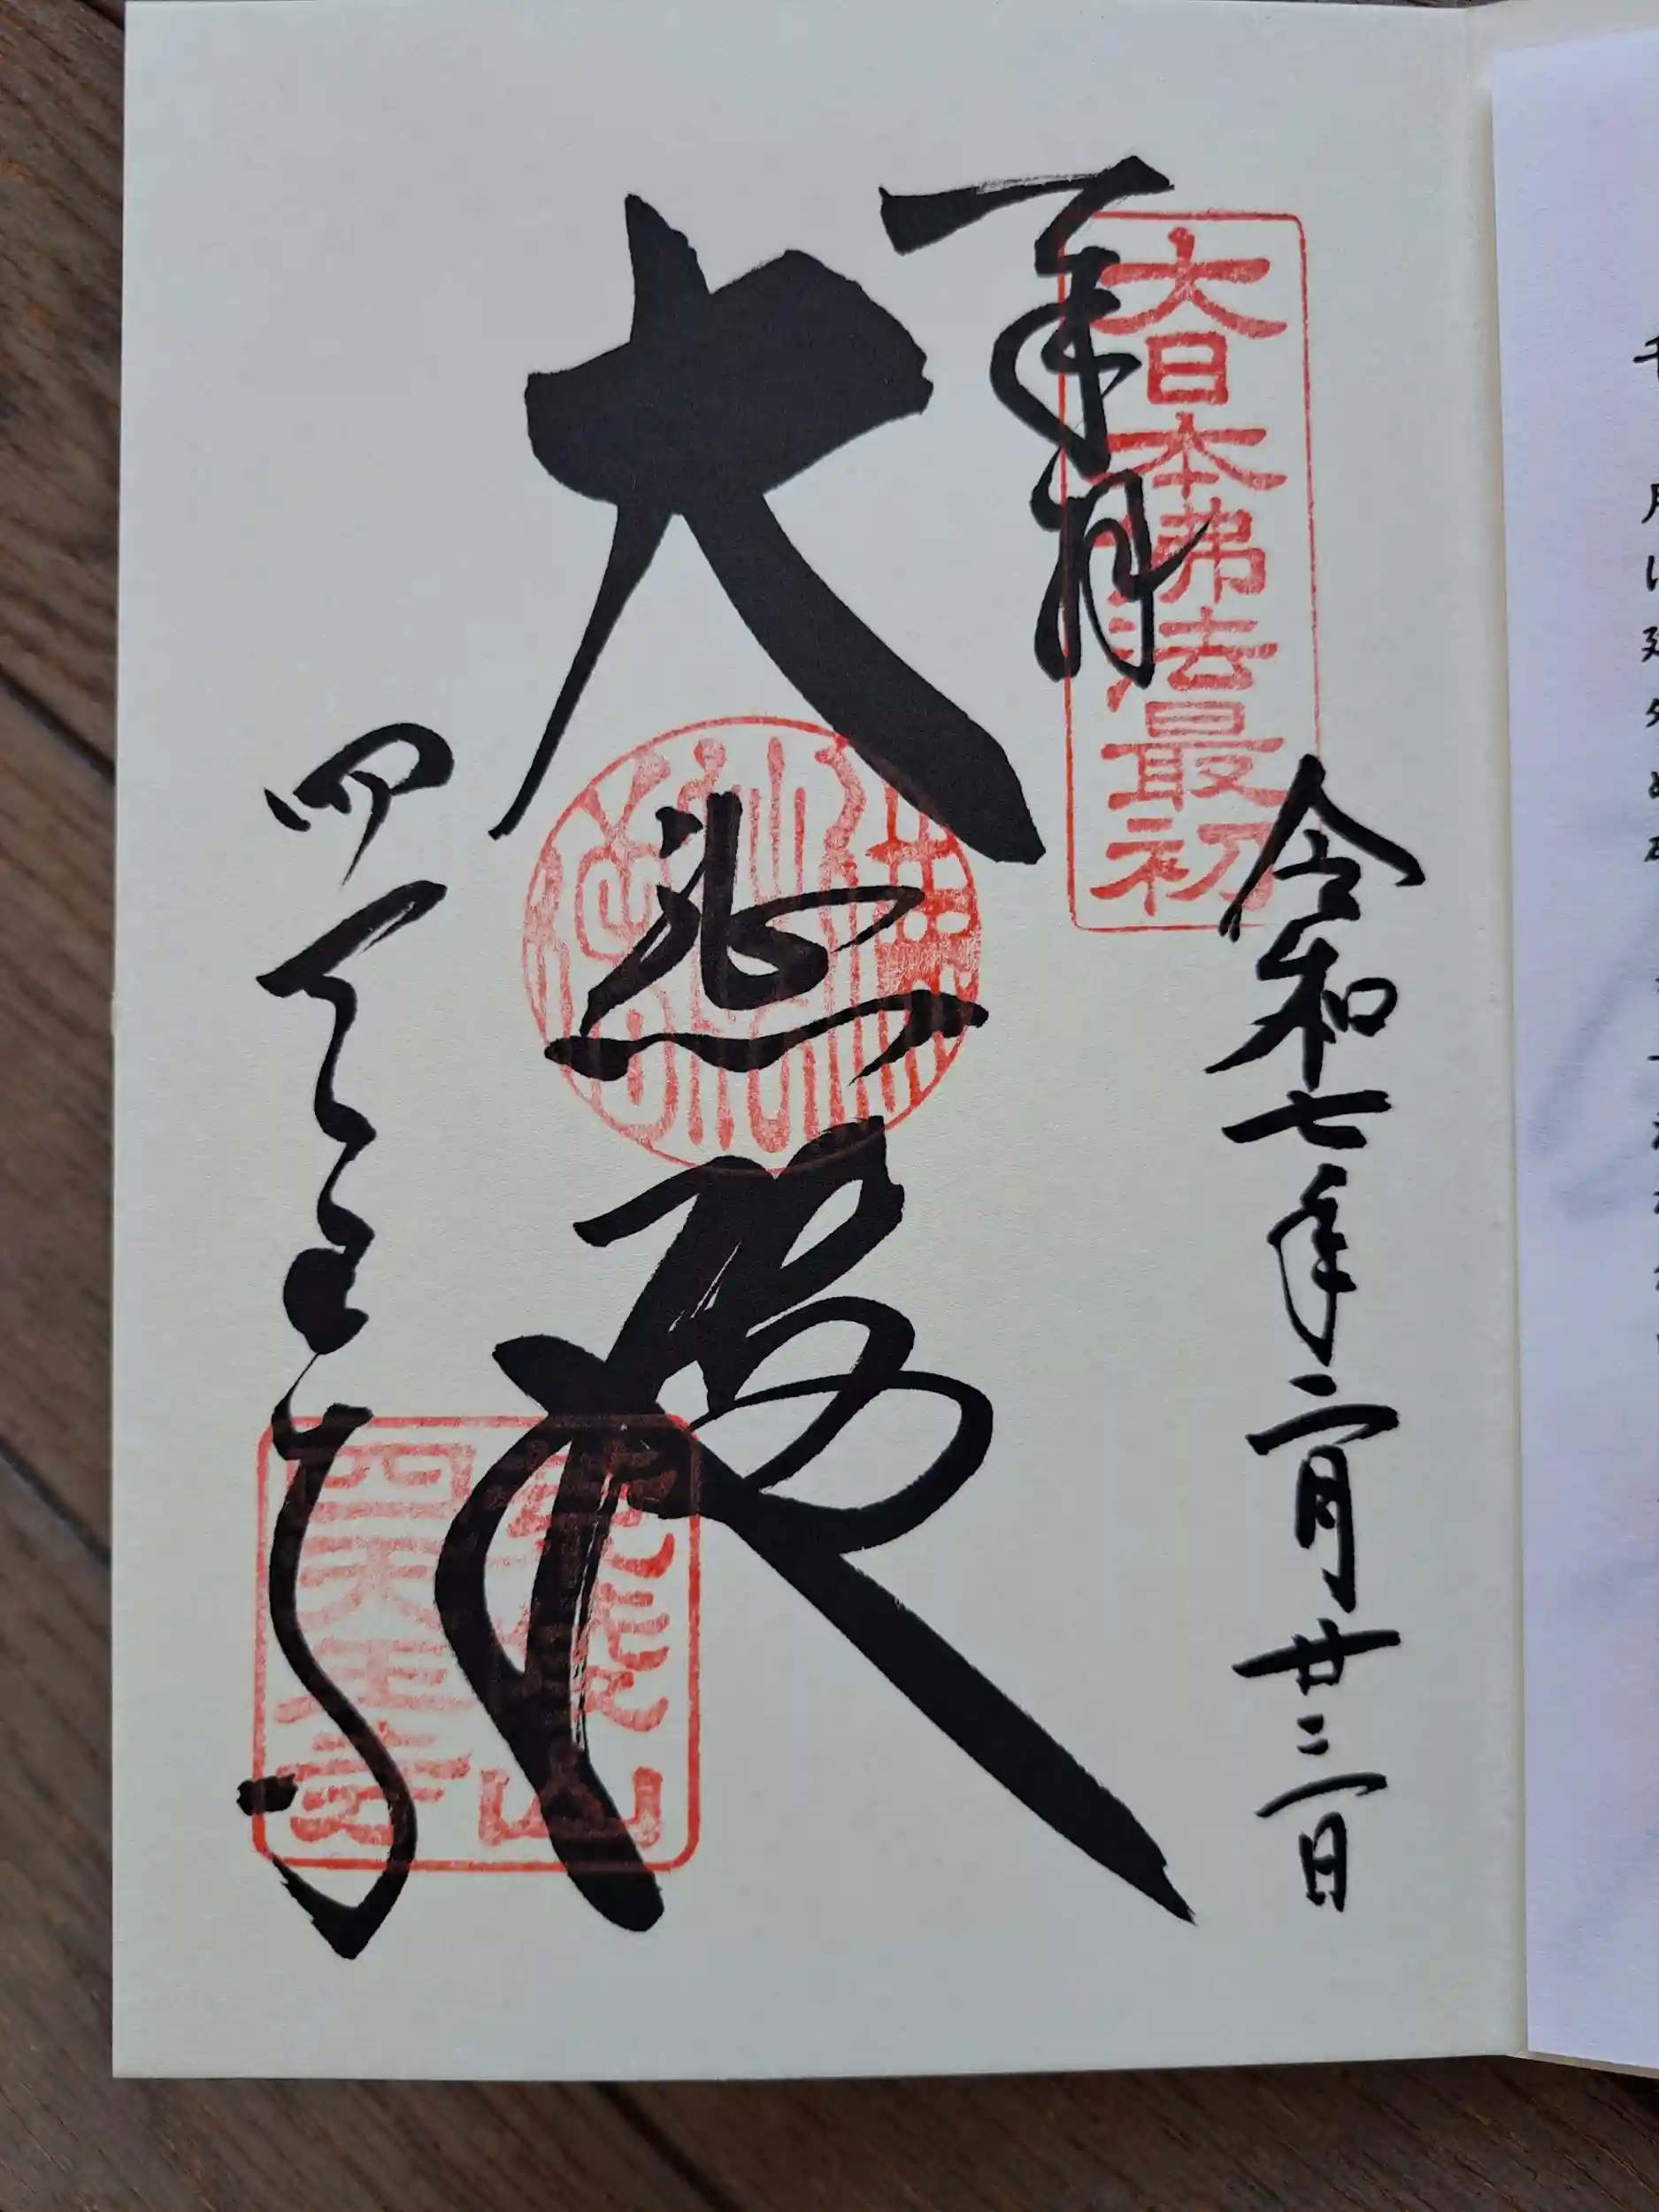 奉拝
大日本佛法最初
令和七年二月廿三日
大悲殿
四天王寺
荒陵山
四天王寺